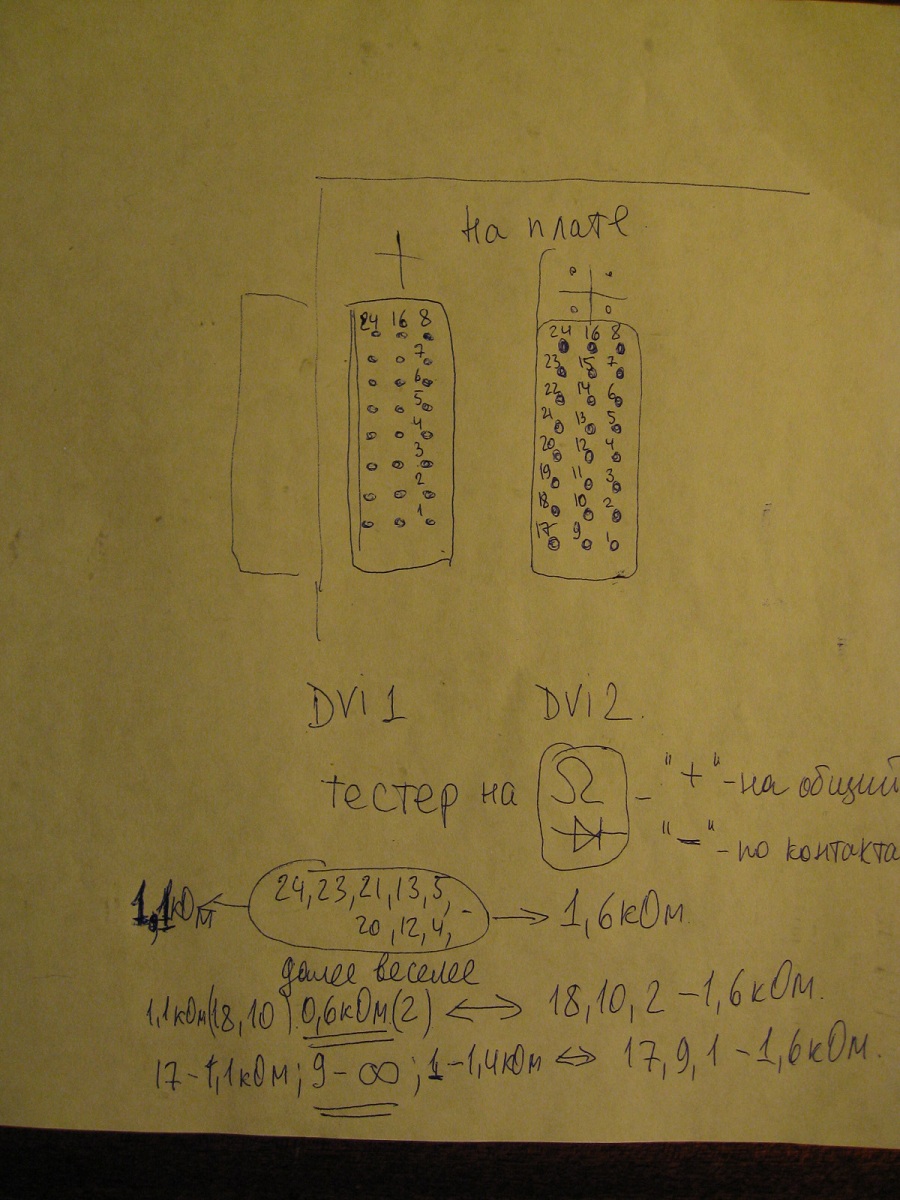 на плате
24 16 8
7
6
5
4
3
2
1
24 16 8
23 15 7
22 14 6
21 13 5
20 12 4
19 11 3
18 10 2
17 9 1
DVi 1 DVi 2.
тестер на Ω - "+" - на общий
"-" - по контакта
1,1кОм ← 24, 23, 21, 13, 5, - → 1,6кОм
20, 12, 4,
далее веселее
1,1кОм(18,10) 0,6кОм(2) ↔ 18, 10, 2 - 1,6кОм.
17 - 1,1кОм; 9 - ∞; 1 - 1,4кОм ⇔ 17, 9, 1 - 1,6кОм.